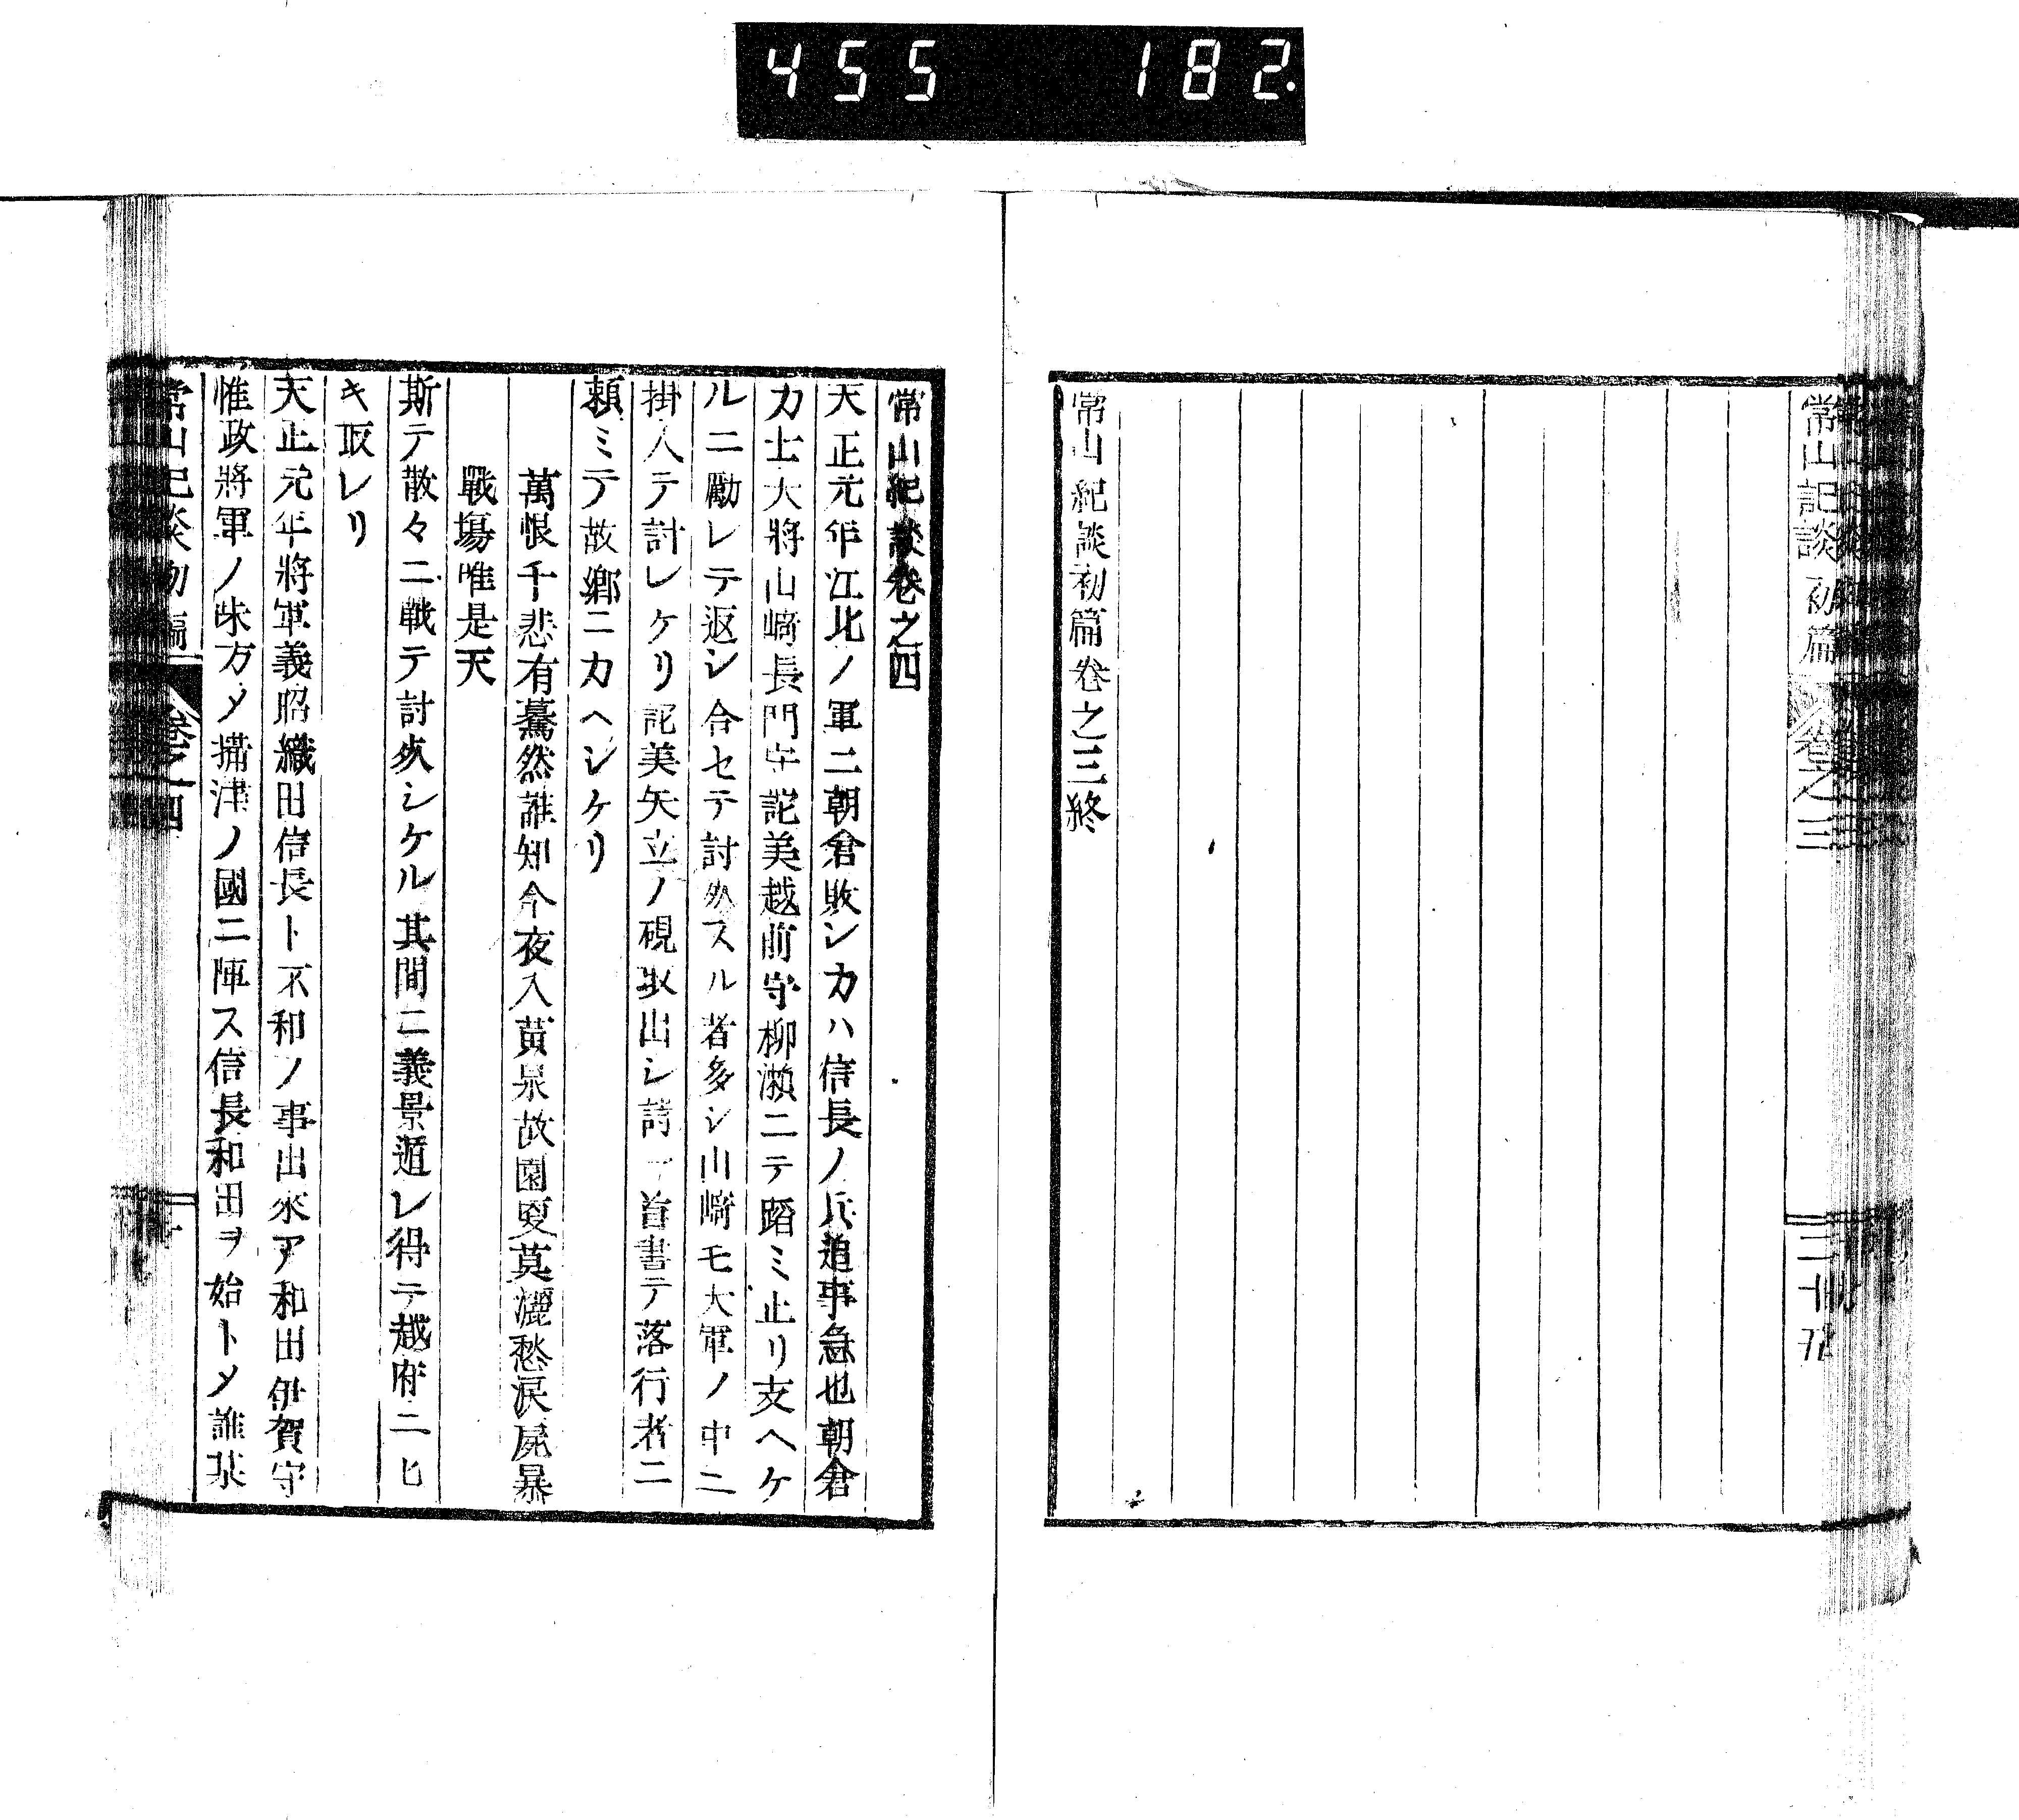 455 182.
常山記談 初篇 卷之三 三十五
常山紀談初篇卷之三終
常山紀談卷之四
天正元年江北ノ軍ニ朝倉敗シカハ信長ノ兵追事急也朝倉
カ士大將山﨑長門守詫美越前守柳瀬ニテ蹈ミ止リ支ヘケ
ルニ勵レテ返シ合セテ討死スル者多シ山﨑モ大軍ノ中ニ
掛入テ討レケリ詫美矢立ノ硯取出シ詩一首書テ落行者ニ
頼ミテ故郷ニカヘシケリ
萬恨千悲有驀然誰知今夜入黄泉故園更莫灑愁涙屍暴
戰塲唯是天
斯テ散々ニ戰テ討死シケル其間ニ義景遁レ得テ越府ニヒ
キ取レリ
天正元年將軍義昭織田信長ト不和ノ事出來ア和田伊賀守
惟政將軍ノ味方メ攝津ノ國ニ陣ス信長和田ヲ始トメ誰某
常山記談初編 卷之四